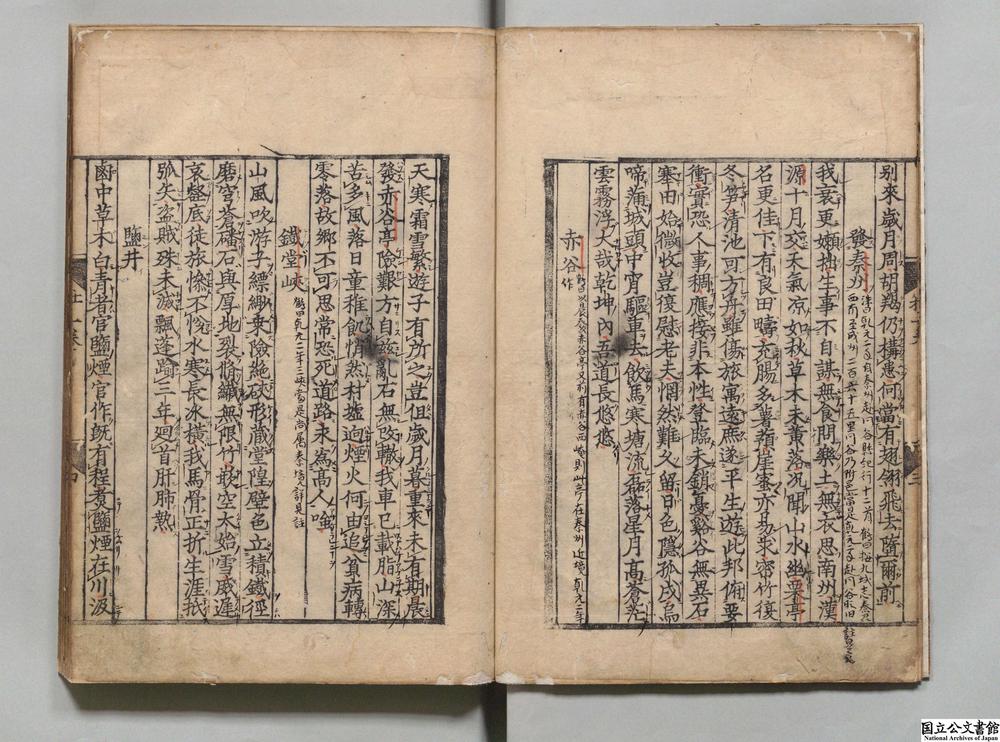 別來歲月周胡羯仍構患何當有翅翎飛去墮爾前
發秦州
我衰更嬾拙生事不自謀無食問樂土無衣思南州漢
源十月交天氣凉如秋草木未黄落況聞山水幽栗亭
名更佳下有良田疇充腸多薯蕷崖蜜亦易求密竹復
冬笋清池可方舟雖傷旅寓遠庶遂平生遊此邦俯要
衝實恐人事稠應接非本性登臨未銷憂谿谷無異石
塞田始微收豈復慰老夫惘然難久留日色隱孤戍烏
啼蒲城頭中宵驅車去飲馬寒塘流磊落星月高蒼茫
雲霧浮大哉乾坤內吾道長悠悠
赤谷
天寒霜雪繁遊子有所之豈但歲月暮重來未有期晨
發赤谷亭險艱方自兹亂石無改轍我車已載脂山深
苦多風落日童稚飢悄然村墟迥煙火何由追貧病轉
零落故鄉不可思常恐死道路永爲高人嗤
鐵堂峽
山風吹游子縹緲乗險絶硤形藏堂隍壁色立積鐵徑
磨穹蒼蟠石與厚地裂脩纖無限竹嵌空太始雪威遲
哀壑底徒旅慘不恱水寒長冰横我馬骨正折生涯抵
弧矢盗賊殊未滅飄蓬踰三年廻首肝肺熱
鹽井
鹵中草木白青者官鹽煙官作旣有程煮鹽煙在川汲
国立公文書館
National Archives of Japan